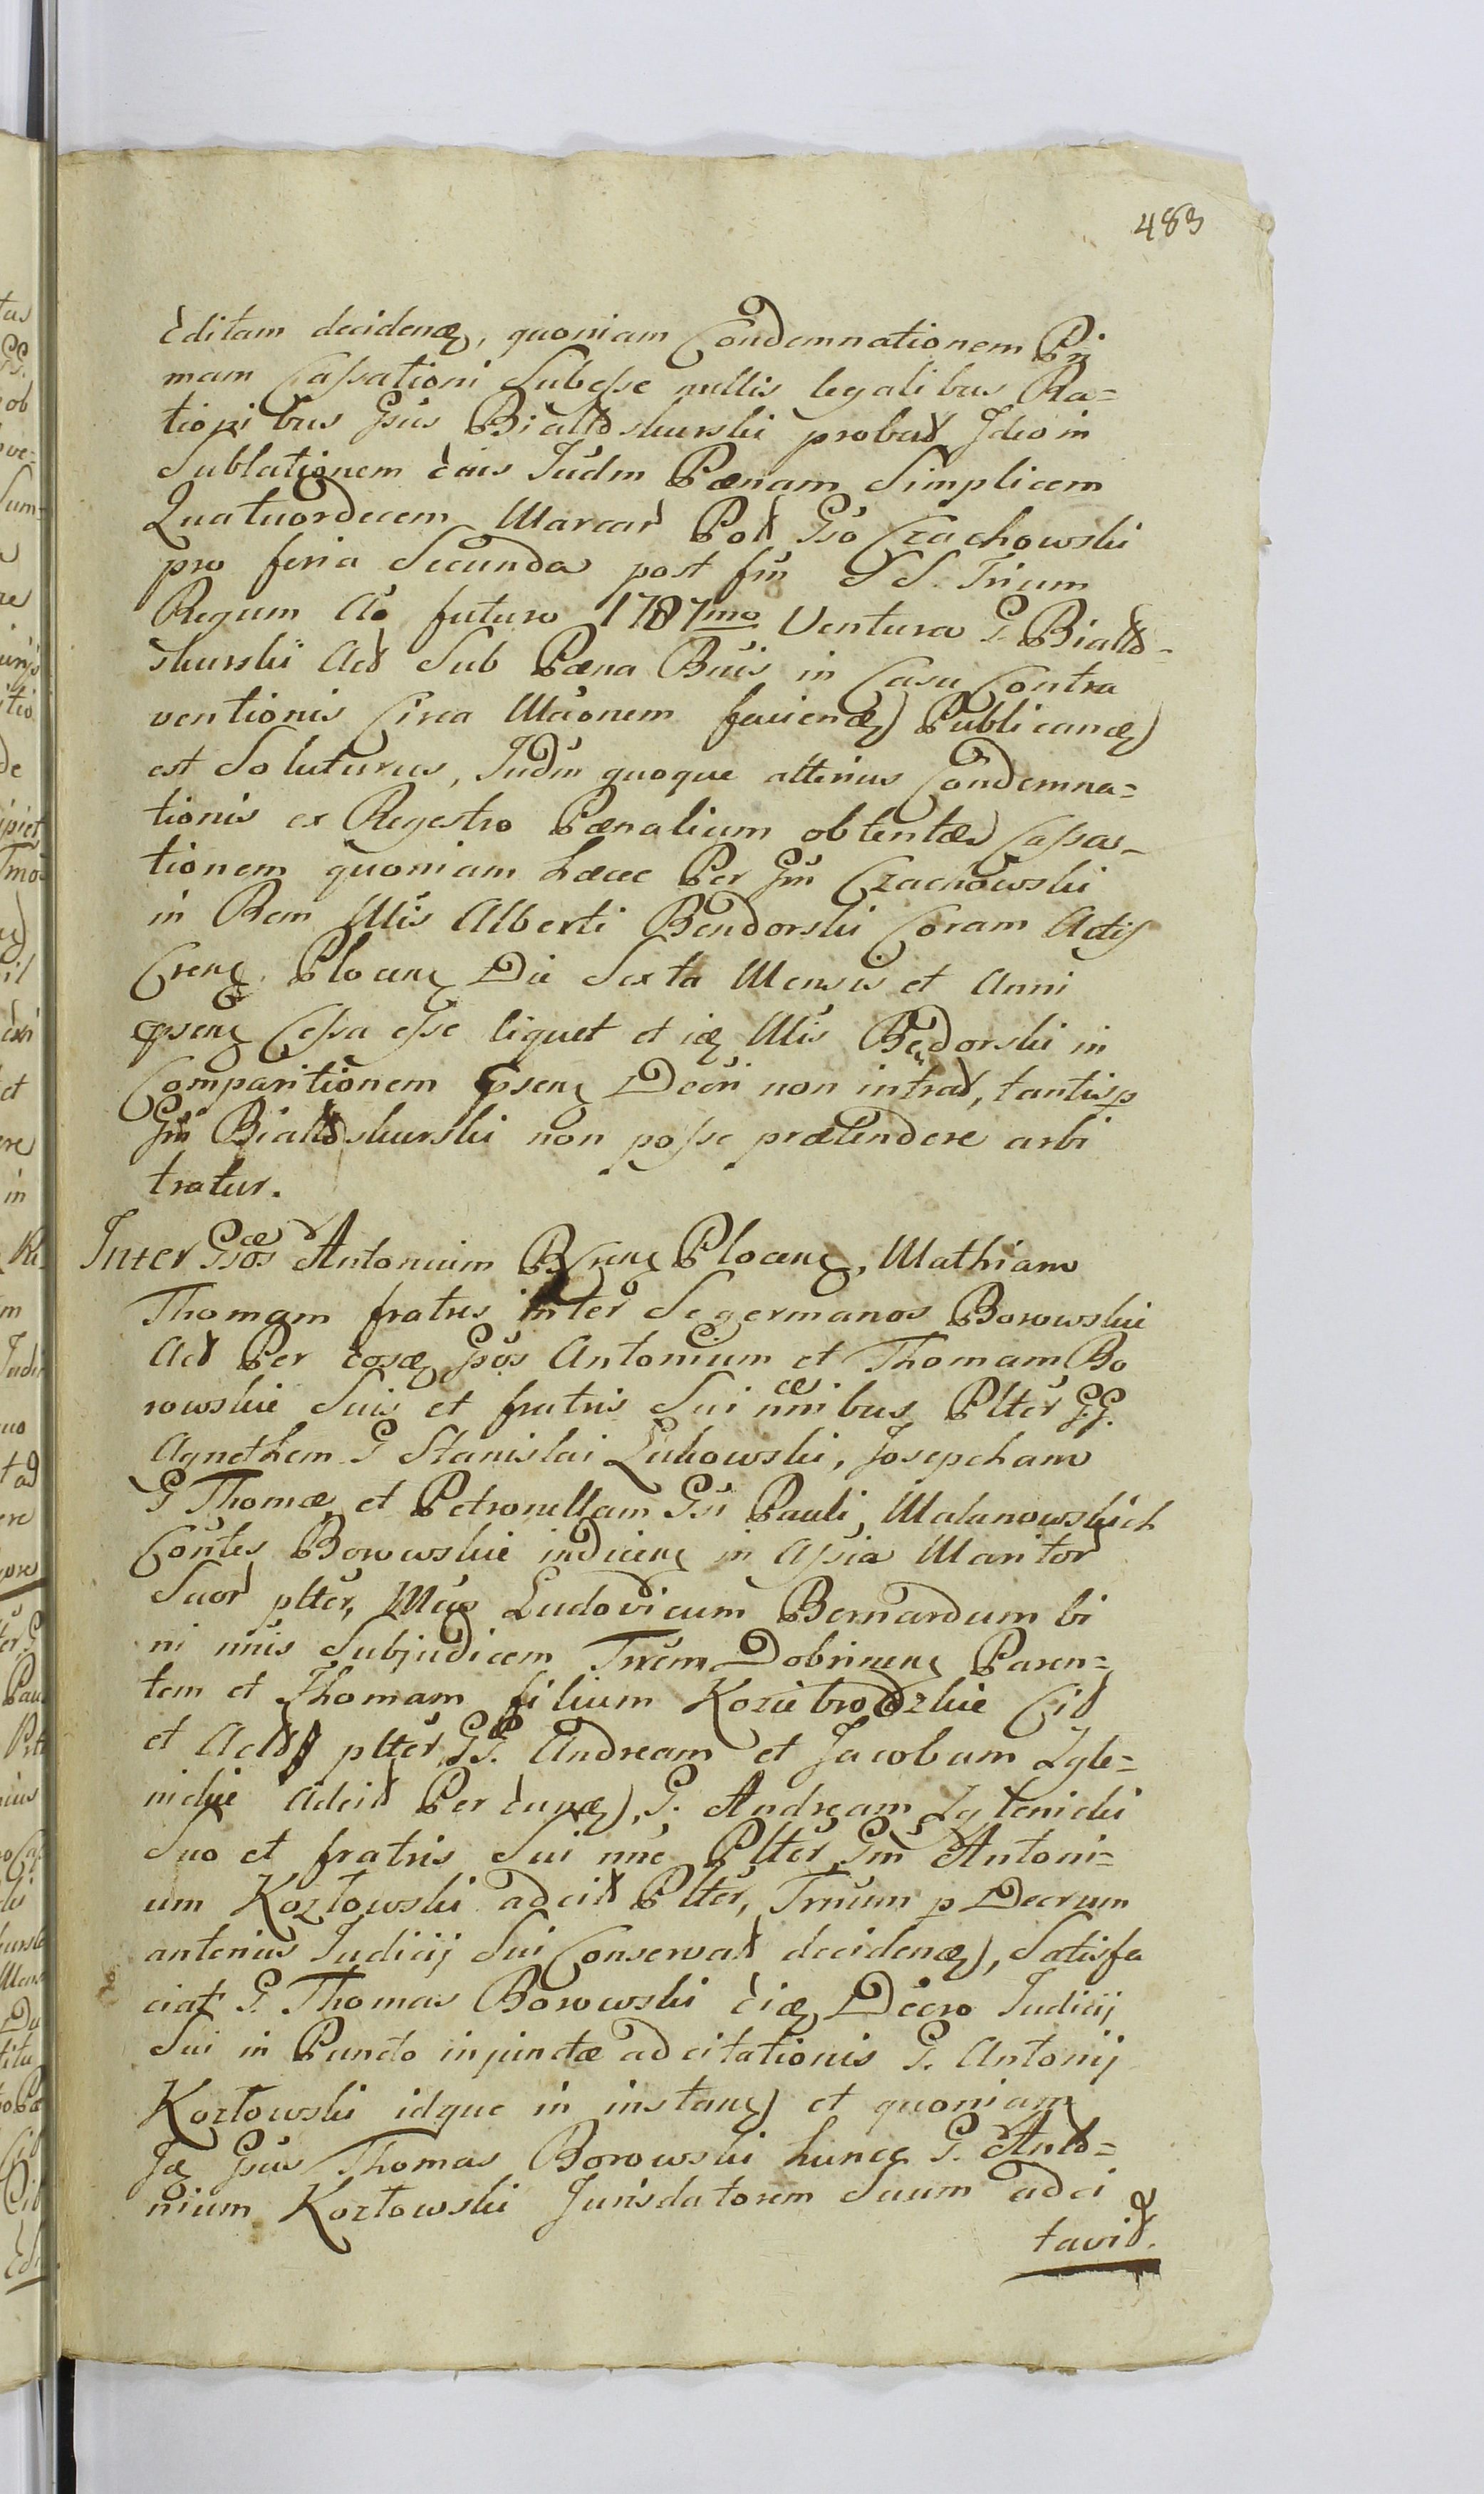 483
Editam decidend, quoniam Condemnationem Pri
mam Cassationi Subesse nullis legalibus Ra=
tionibus Gsus Białoskurski probat Ideo in
Sublationem ejus Judm Pænam Simplicem
Quatuordecem Marcar Pol Gso Czachowski
pro feria Secunda post fm S S. Trium
Regum Ao futuro 1787mo Ventura G Biało=
skurski Act Sub Pæna Bnis in Casu Contra
ventionis Circa Mtionem faciend Publicand
est Soluturus, Judm quoque alterius Condemna=
tionis ex Regestro Pænalium obtentæ Cassa=
tionem quoniam hæcce Per Gm Czachowski
in Rem Mis Alberti Bendorski Coram Actis
Cren Plocen Die Sexta Mensis et Anni
psen Cessa esse liquet et id Mis Będorski in
Comparitionem psen Decri non intrat, tantisp
Gm Białoskurski non posse prætendere arbi
tratur.
Inter Gsos Antonium Plocen, Mathiam
Thomam fratres inter Se germanos Borowskie
Act Per eosd Gsos Antonium et Thomam Bo
rowskie Suis et fratris Sui nnibus Plter GG.
Agnethem G Stanislai Lukowski, Josepham
G Thomæ et Petronellam Gsi Pauli, Malanowskich
Contes Borowskie indicen in Assia Maritor
Suor plter, Ludovicum Bernardum bi
ni nnis Subjudicem Trrem Dobrinen Paren=
tem et Thomam filium Koziebrodzkie Cit
et Act plter GG. Andream et Jacobum Zgle=
nickie Adcit Per eund, G. Andream Zglenicki
Suo et fratris Sui nne Plter Gm Antoni=
um Kozłowski adcit Plter, Trnum p Decrum
anterius Judicij Sui Conservat decidend, Satisfa
ciat G. Thomas Borowski eid Decro Judicij
Sui in Puncto injunctæ adcitationis G. Antonij
Kozłowski idque in instan et quoniam
Id Gsus Thomas Borowski hunc G. Anto=
nium Kozłowski Jurisdatorem Suum adci
tavit.